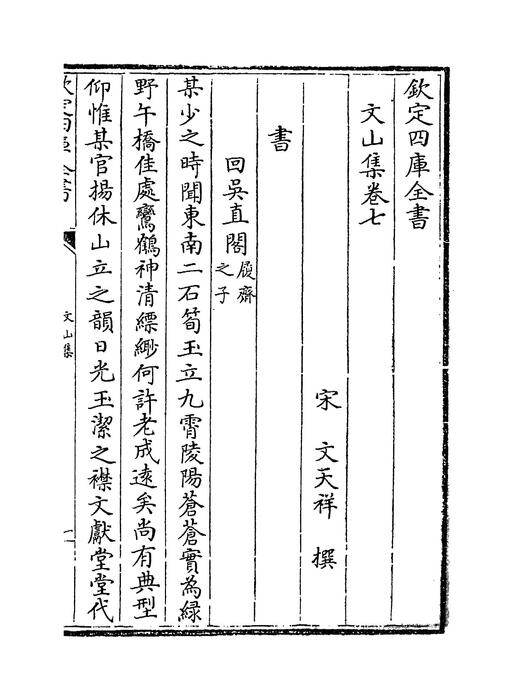 欽定四庫全書
文山集卷七
宋 文天祥 撰
書
回吳直閣履齋之子
某少之時聞東南二石筍玉立九霄陵陽蒼蒼實為緑
野午橋佳處鸞鶴神清縹緲何許老成逺矣尚有典型
仰惟某官揚休山立之韻日光玉潔之襟文獻堂堂代
欽定四庫全書
文山集
一